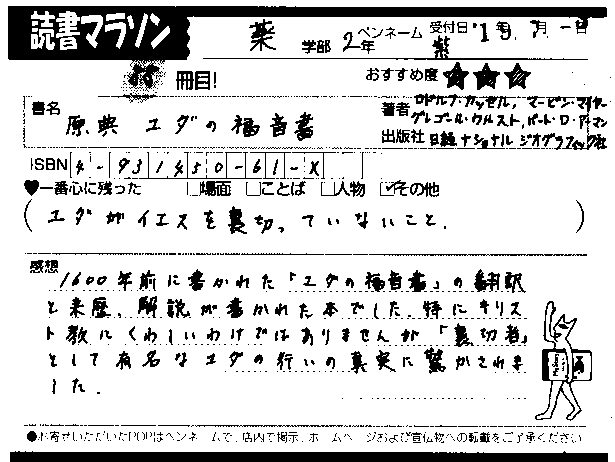 読書マラソン
薬 学部 2年 ペンネーム 紫 受付日 '19年 7月 一日
冊目! おすすめ度 ★★★
書名 原典 ユダの福音書
著者 ロドルフ・カッセル, マービン・マイヤー
グレゴール・ウルスト, バート・D・アーマン
出版社 日経ナショナル ジオグラフィック社
ISBN 4-931450-61-X
♥一番心に残った □場面 □ことば □人物 ☑その他
(ユダがイエスを裏切っていないこと.)
感想
1600年前に書かれた「ユダの福音書」の翻訳
と来歴、解説が書かれた本でした。特にキリス
ト教にくわしいわけではありませんが「裏切者」
として有名なユダの行いの真実に驚かされま
した.
●お寄せいただいたPOPはペンネームで、店内で掲示、ホームページおよび宣伝物への転載をご了承ください